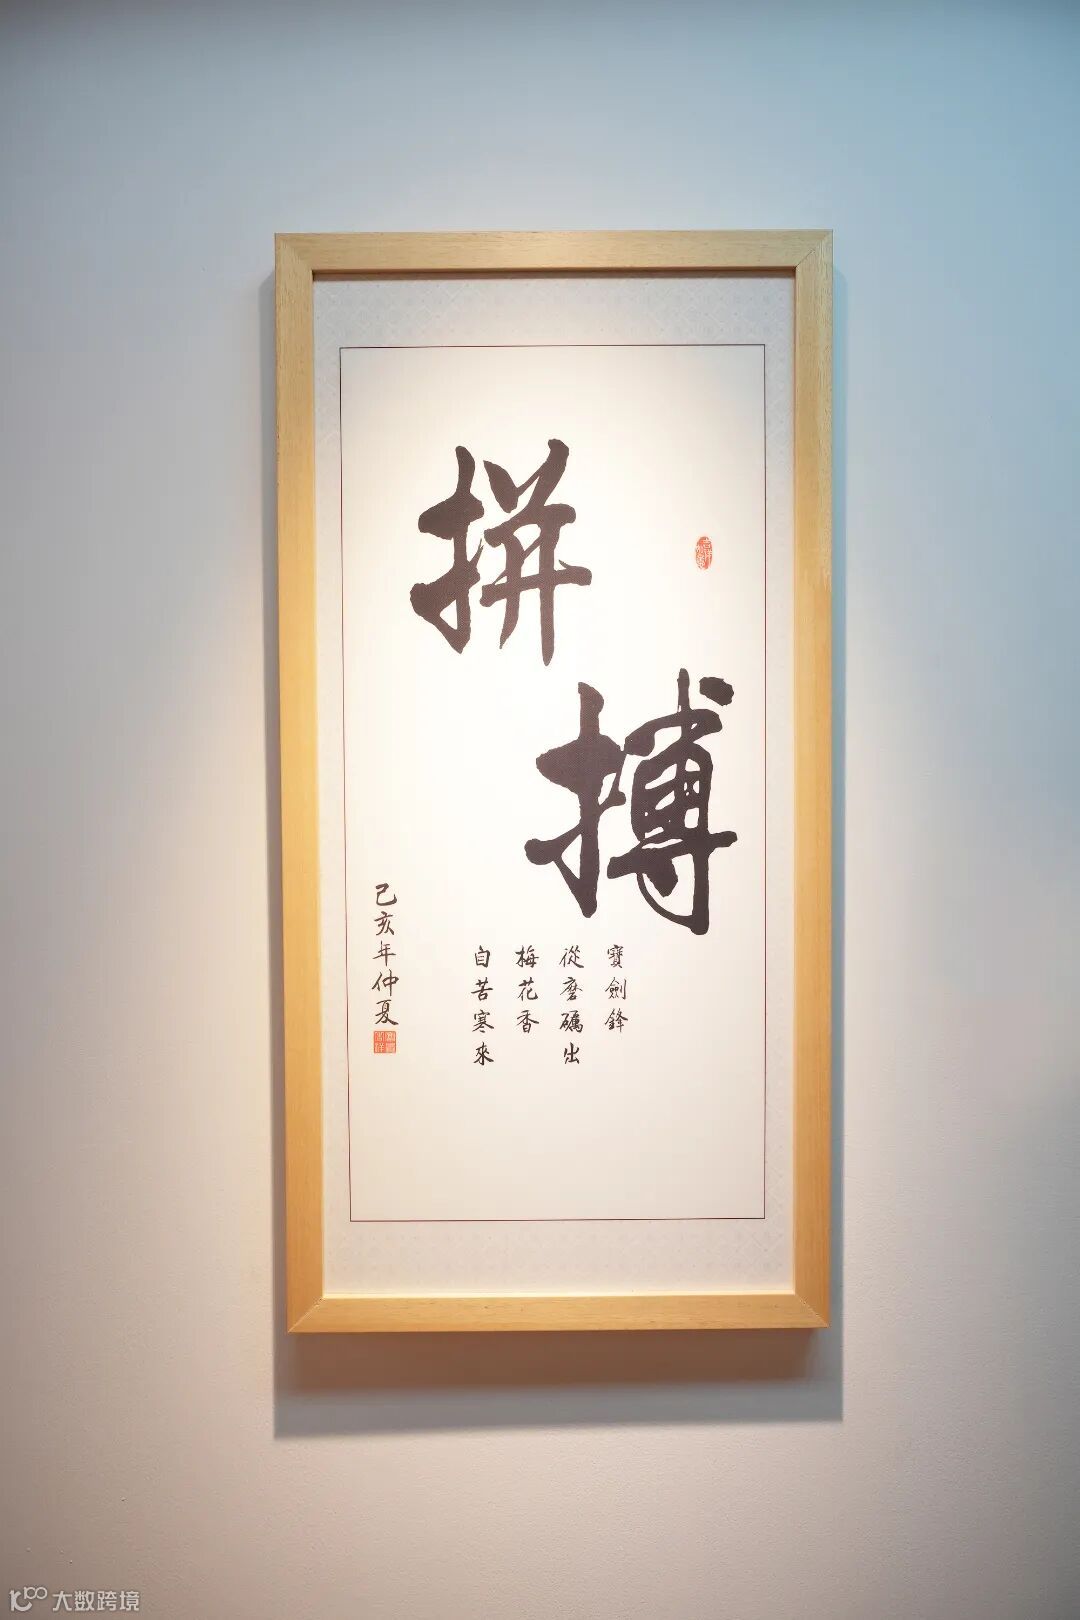 拼
搏
寶劍鋒
從磨礪出
梅花香
自苦寒來
己亥年仲夏
大数跨境